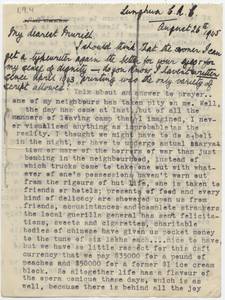 Lunghua C.A.C.
August 26th 1945
My dearest Muriel
I should think that the sooner I can
get a typewriter again the better for your eyes & for
my sense of dignity — do you know I haven't written
since April 1943. Printing was the only variety of
script allowed.
Talk about an answer to prayer...
one of my neighbours has taken pity on me. Well,
the day has come at last, but of all the
manners of leaving camp that I imagined, I never
visualised anything so improbable as the
reality. I thought we might have to do a belt
in the night, or have to undergo actual starvat
tion or more of the horrors of war than just
bombing in the neighbourhood, instead of
which trucks come to take one out with what-
ever of one's possessions haven't worn out
from the rigours of hut life, she is taken to
friends or hotels; presents of food and every
kind of delicacy are showered upon us from
friends, acquaintances and complete strangers
the local guerilla general has sent felicita-
tions, sweets and cigarettes, charitable
bodies of chinese have given us pocket money
to the tune of six lakhs each....nice to have,
but we have as little respect for this daft
currency that we pay $35000 for a pound of
peaches and $50000 for a former 5¢ ice cream
block. So altogether life has a flavour of
the opera comique these days, which is as
well, because there is behind all the joy